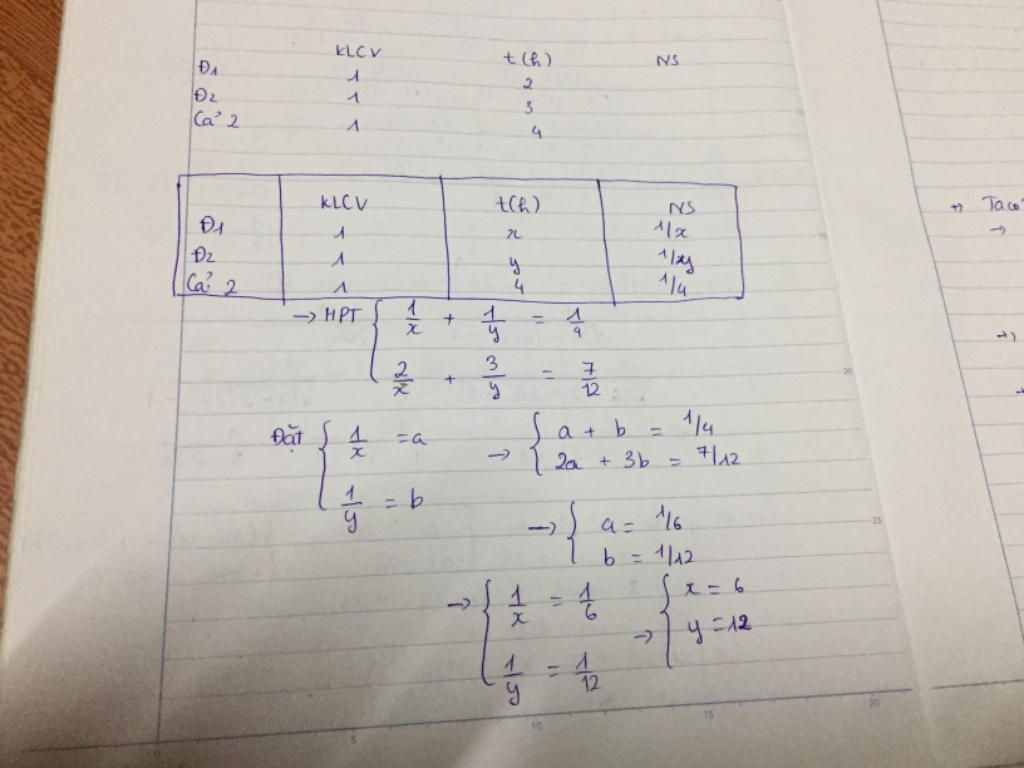 KLCV t(h) NS
Đ1 1 2
Đ2 1 3
Cả 2 1 4
KLCV t(h) NS
Đ1 1 x 1/x
Đ2 1 y 1/xy
Cả 2 1 4 1/4
→ HPT { 1/x + 1/y = 1/4
2/x + 3/y = 7/12
Đặt { 1/x = a → { a + b = 1/4
2a + 3b = 7/12
1/y = b
→ { a = 1/6
b = 1/12
→ { 1/x = 1/6 → { x = 6
y = 12
1/y = 1/12
5 10 15 20
20
25
→) Taco
→
→)
→